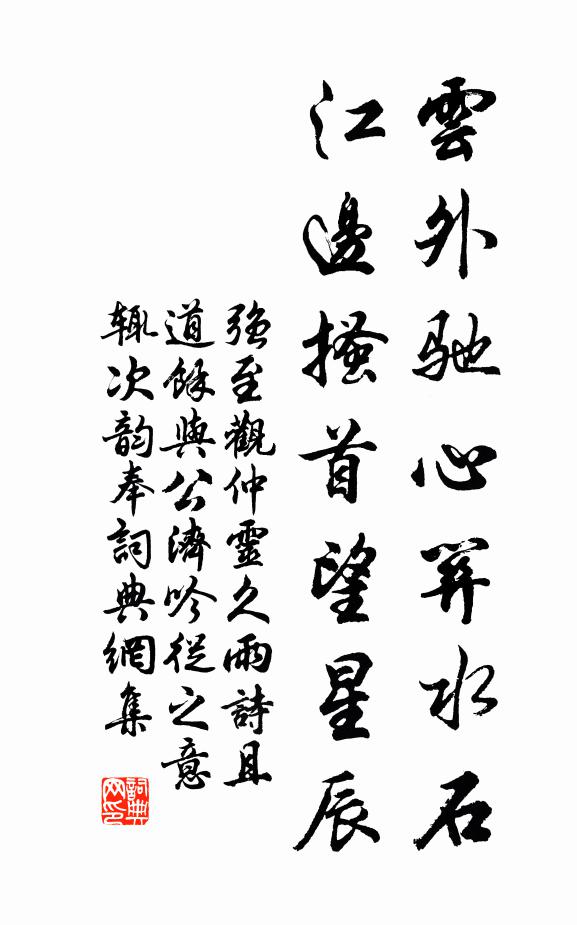 雲外馳心羿水石
江邊搔首望星辰
強至觀仲靈久雨詩且
道餘與公濟吟從之意
輒次韵奉詞典網集
詞典网印